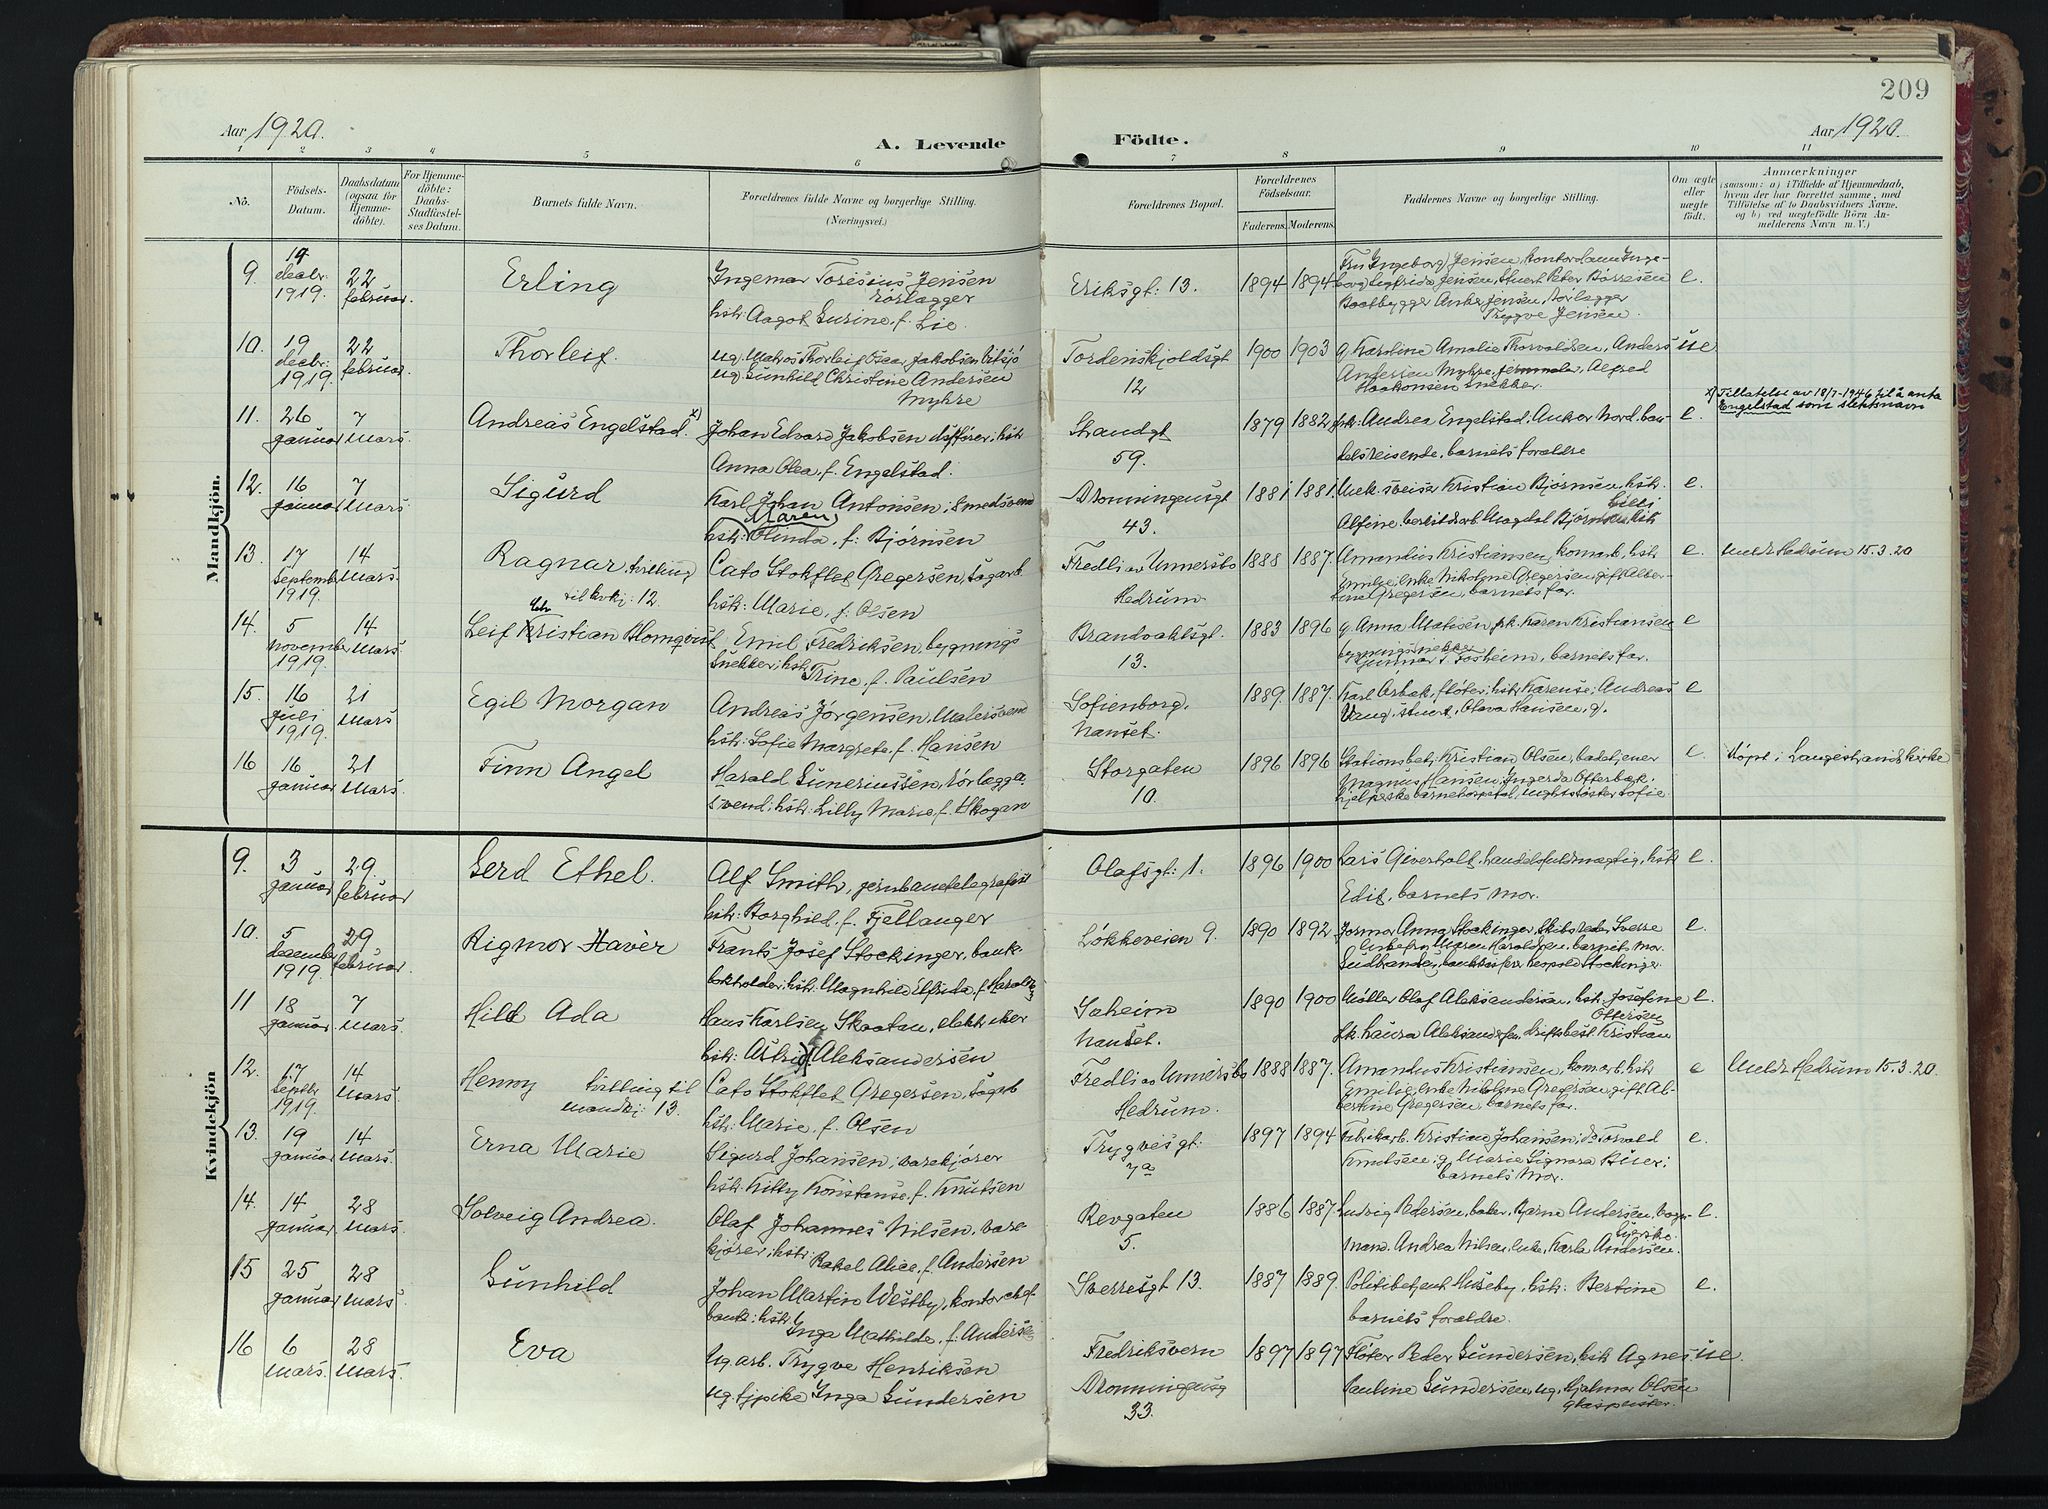 209
Aar 1920.
A. Levende Födte.
Aar 1920.
1 2 3 4 5 6 7 8 9 10 11
No.
Födsels-Datum.
Daabsdatum (ogsaa for Hjemmedöbte).
For Hjemmedöbte: Daabs-Stadfæstelses Datum.
Barnets fulde Navn.
Forældrenes fulde Navne og borgerlige Stilling.
(Næringsvei.)
Forældrenes Bopæl.
Forældrenes Födselsaar.
Faderens. Moderens.
Faddernes Navne og borgerlige Stilling.
Om ægte eller uægte födt.
Anmærkninger
(saasom: a) i Tilfælde af Hjemmedaab, hvem der har forrettet samme, med Tilföielse af to Daabsvidners Navne, og b) ved uægtefödte Börn Anmelderens Navn m. V.)
Mandkjön.
9. 14 decbr. 1919. 22 februar. Erling
Ingemar Toresius Jensen
rørlægger
hstr: Aagot Gurine, f. Lie.
Eriksgt: 13. 1894 1894
Fru Ingeborg Jensen, kontordame Ingeborg
Jensen, stuert Peter Børresen
Baatbygger Anker Jensen, rørlægger
Trygve Jensen.
e.
10. 19 decbr. 1919. 22 februar Thorleif.
ug. Matros Thorleif Oscar Jakobsen
ug. Gunhild Christine Andersen
Myhre
Tordenskjoldsgt 12 1900 1903
g. Karoline Amalie Thorvaldsen, Anders
Andersen Myhre, Alfred
Haakonsen snekker.
ue
11. 26 januar 7 mars. Andreas Engelstad. x)
Johan Edvard Jakobsen, hstr
Anna Olea, f. Engelstad.
Strandgt 59. 1879 1882
frk: Andrea Engelstad, Anker Nord. handelsreisende,
barnets forældre
e.
x) Tillatelse av 18/7-1946 til å anta
Engelstad som slektsnavn
12. 16 januar 7 mars. Sigurd
Karl Johan Antonsen, smedsvend
Maren
hstr: Olinda, f: Bjørnsen
Dronningensgt 43. 1881 1881.
Mek. sveiser Kristian Bjørnsen, hstr.
Lilli
Alfine, Magdal Bjørnsen, hstr
e.
13. 17 septembr 1919. 14 mars. Ragnar, tvilling
til kvkj: 12.
Cato Stokflet Gregersen, sagarb.
hstr: Marie, f. Olsen
Fredli av Unnersbo Hedrum. 1888 1887.
Amandus Kristiansen, komarb, hstr
Emilie, enke Nikoline Gregersen, gift Albertine
Gregersen, barnets far.
e.
Meldt Hedrum 15.3.20
14. 5 november 1919. 14 mars. Leif Kristian Blomqvist
Emil Fredriksen, bygnings
snekker; hstr
Trine, f. Paulsen
Brandvaltsgt. 13. 1883 1896
g. Anna Matisen, frk. Karen Kristiansen
bygningssnekker
Gunnar Fosheim, barnets far.
e
15. 16 juli 1919. 21 mars. Egil Morgan
Andreas Jörgensen, Malersvend
hstr: Sofie Margrete, f. Hansen
Sofienborg, Nanset. 1889. 1887.
Karl Orbæk, fløter; hstr Karense; Andreas
stuert, Olava Hansen, g.
e
16 16 januar 21 mars. Finn Angel
Harald Guneriussen, rörlægger
svend; hstr: Lilly Marie, f. Skogan
Storgaten 10. 1896 1896
Stationsbetj: Kristian Olsen, badetjener
Magnus Hansen; Ingerda Otterbæk.
hjelpeske barnehospital, Sofie
e
døpt i Langestrands kirke
Kvindekjön
9. 3 januar 29 februar Gerd Ethel.
Alf Smith, jernbanetelegrafist
hstr: Borghild, f. Fjellanger
Olafsgt: 1. 1896 1900
Lars Giverholt, handelsfuldmægtig, hstr
Edit, barnets mor.
e.
10. 5 decembr 1919. 29 februar. Rigmor Havèr
Frants Josef Stockinger, bankbokholder;
hstr: Magnhild Elfrida, f. Haraldsen
Løkkeveien 9. 1890 1892
Jormor Anna Stockinger, Skibsreder Sverre
Maren Haraldsen, barnets mor.
Leopold Stockinger
e.
11 18 januar 7 mars. Hild Ada
Hans Karlsen Skaatan, elektriker
hstr: Astrid Aleksandersen
Saheim Nanset. 1890 1900
Møller Olaf Aleksandersen, hstr Josefine
Ottersen
frk. Laura Aleksandersen, driftsbest. Kristian
e.
12. 17 septbr 1919. 14 mars. Henny tvilling til
mandkj: 13.
Cato Stokflet Gregersen, sagarb
hstr: Marie, f. Olsen
Fredli av Unnersbo Hedrum. 1888 1887.
Amandus Kristiansen, komarb, hstr
Emilie, enke Nikoline Gregersen, gift Albertine
Gregersen, barnets far.
e
Meldt Hedrum 15.3.20.
13. 19 januar 14 mars. Erna Marie
Sigurd Johansen; varekjører
hstr. Kitty Konstanse, f. Knutsen
Trygvesgt: 7a 1897 1894
Fabrikarb. Kristian Johansen; do Torvald
Knutsen; g. Marie Signora Buer;
barnets mor.
e.
14. 14 januar 28 mars. Solveig Andrea.
Olaf Johannes Nilsen, varekjører,
hstr:
Rakel Alice, f. Andersen
Revgaten 5. 1886 1887
Ludvig Pedersen, baker, Bjarne Andersen, vognmand.
Andrea Nilsen, enke, Karla Andersen.
e.
15 25 januar 28 mars. Gunhild
Johan Martin Westby, kontorchef
bank: hstr
Inga Mathilde, f. Andersen
Sverresgt 13. 1887 1889.
Politibetjent Huseby, hstr: Bertine
barnets forældre.
e.
16 6 mars. 28 mars. Eva
Ug. arb. Trygve Henriksen
ug. tjpike Inga Gundersen
Fredriksvern
Dronningensg 33. 1897 1897
Fløter Peder Gundersen, hstr Agnes
Pauline Gundersen, ug. Hjalmar Olsen
Glaspuster.
ue.